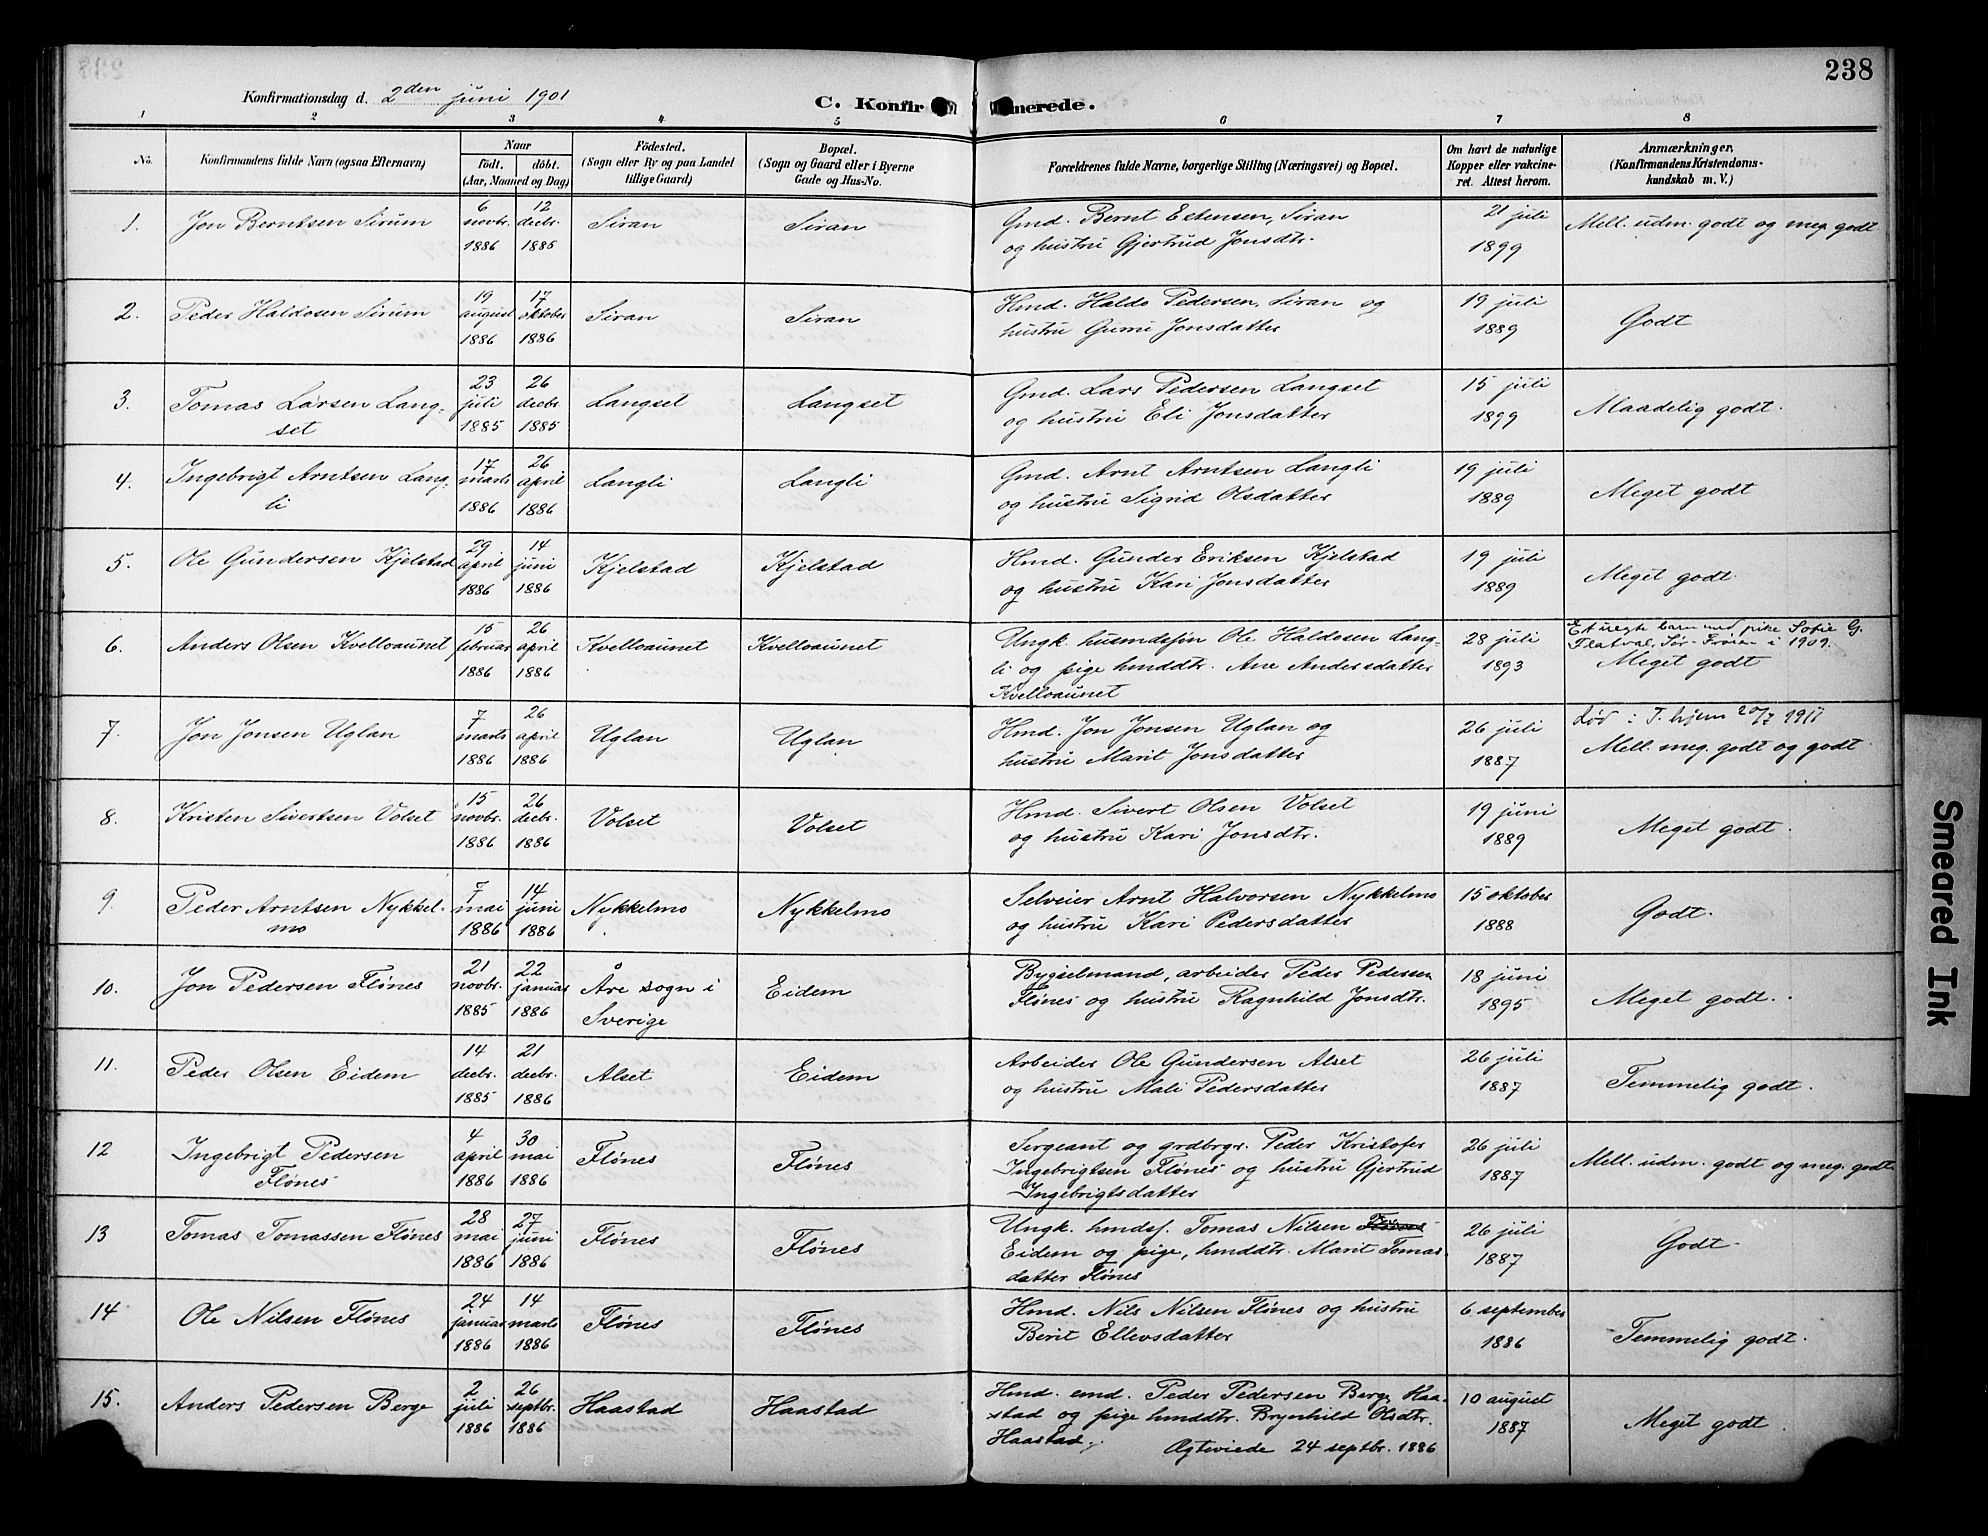 238
Konfirmationsdag d. 2den juni 1901
C. Konfirmerede.
1 2 3 4 5 6 7 8
No.
Konfirmandens fulde Navn (ogsaa Efternavn)
Naar
födt. döbt.
(Aar, Maaned og Dag)
Födested.
(Sogn eller By og paa Landet
tillige Gaard)
Bopæl.
(Sogn og Gaard eller i Byerne
Gade og Hus-No.
Forældrenes fulde Navne, borgerlige Stilling (Næringsvei) og Bopæl.
Om havt de naturlige
Kopper eller vakcine-
ret. Attest herom.
Anmærkninger.
(Konfirmandens Kristendoms-
kundskab m. V.)
1. Jon Berntsen Sirum
6 novbr. 1886
12 decbr. 1885
Siran
Siran
Gmd. Bernt Estensen, Siran
og hustru Gjertrud Jonsdtr.
21 juli
1899
Mell. udm. godt og meg. godt
2. Peder Haldosen Sirum
19 august 1886
17 oktober 1886
Siran
Siran
Hmd. Haldo Pedersen, Siran og
hustru Gurru Jonsdatter
19 juli
1889
Godt
3. Tomas Larsen Lang-
set
23 juli 1885
26 decbr. 1885
Langset
Langset
Gmd. Lars Pedersen Langset
og hustru Eli Jonsdatter
15 juli
1899
Maadelig godt.
4. Ingebrigt Arntsen Lang-
li
17 marts 1886
26 april 1886
Langli
Langli
Gmd. Arnt Arntsen Langli
og hustru Sigrid Olsdatter
19 juli
1889
Meget godt
5. Ole Gundersen Kjelstad
29 april 1886
14 juni 1886
Kjelstad
Kjelstad
Hmd. Gunder Eriksen Kjelstad
og hustru Kari Jonsdatter
19 juli
1889
Meget godt
6. Anders Olsen Kvelloaunet
15 februar 1886
26 april 1886
Kvelloaunet
Kvelloaunet
Ungk. husmdssøn Ole Haldosen Lang-
li og pige hmddtr. Ane Andersdatter
Kvelloaunet
28 juli
1893
Et uegte barn med pike Sofie G.
Flatval, Sør-Frøien i 1909.
Meget godt
7. Jon Jonsen Uglan
7 marts 1886
26 april 1886
Uglan
Uglan
Hmd. Jon Jonsen Uglan og
hustru Marit Jonsdatter
26 juli
1887
død i T. hjem 20/7 1911
Mell. meg. godt og godt
8. Kristen Sivertsen Volset
15 novbr. 1886
26 decbr. 1886
Volset
Volset
Hmd. Sivert Olsen Volset
og hustru Kari Jonsdtr.
19 juni
1889
Meget godt.
9. Peder Arntsen Nykkel-
mo
7 mai 1886
14 juni 1886
Nykkelmo
Nykkelmo
Selveier Arnt Halvorsen Nykkelmo
og hustru Kari Pedersdatter
15 oktober
1888
Godt.
10. Jon Pedersen Flönes
21 novbr. 1885
22 januar 1886
Åre sogn i
Sverige
Eidem
Bygselmand, arbeider Peder Pedersen
Flönes og hustru Ragnhild Jonsdtr.
18 juni
1895
Meget godt.
11. Peder Olsen Eidem
14 decbr. 1885
21 decbr. 1886
Alset
Eidem
Arbeider Ole Gundersen Alset
og hustru Mali Pedersdatter
26 juli
1887
Temmelig godt.
12 Ingebrigt Pedersen
Flönes
4 april 1886
30 mai 1886
Flönes
Flönes
Sergeant og grdbrgr. Peder Kristofer
Ingebrigtsen Flönes og hustru Gjertrud
Ingebrigtsdatter
26 juli
1887
Mell. udm. godt og meg. godt.
13 Tomas Tomassen Flönes
28 mai 1886
27 juni 1886
Flönes
Flönes
Ungk. hmdsf. Tomas Nilsen Flönes
Eidem og pige, hmddtr. Marit Tomas-
datter Flönes
26 juli
1887
Godt
14 Ole Nilsen Flönes
24 januar 1886
14 marts 1886
Flönes
Flönes
Hmd. Nils Nilsen Flönes og hustru
Berit Ellevsdatter
6 september
1886
Temmelig godt.
15. Anders Pedersen Berge
2 juli 1886
26 septbr. 1886
Haastad
Haastad
Hmd. emd. Peder Pedersen Berge, Haa-
stad og pige hmddtr. Brynhild Olsdtr.
Haastad. Ægtviede 24 septbr. 1886
10 august
1887
Meget godt
Smeared Ink